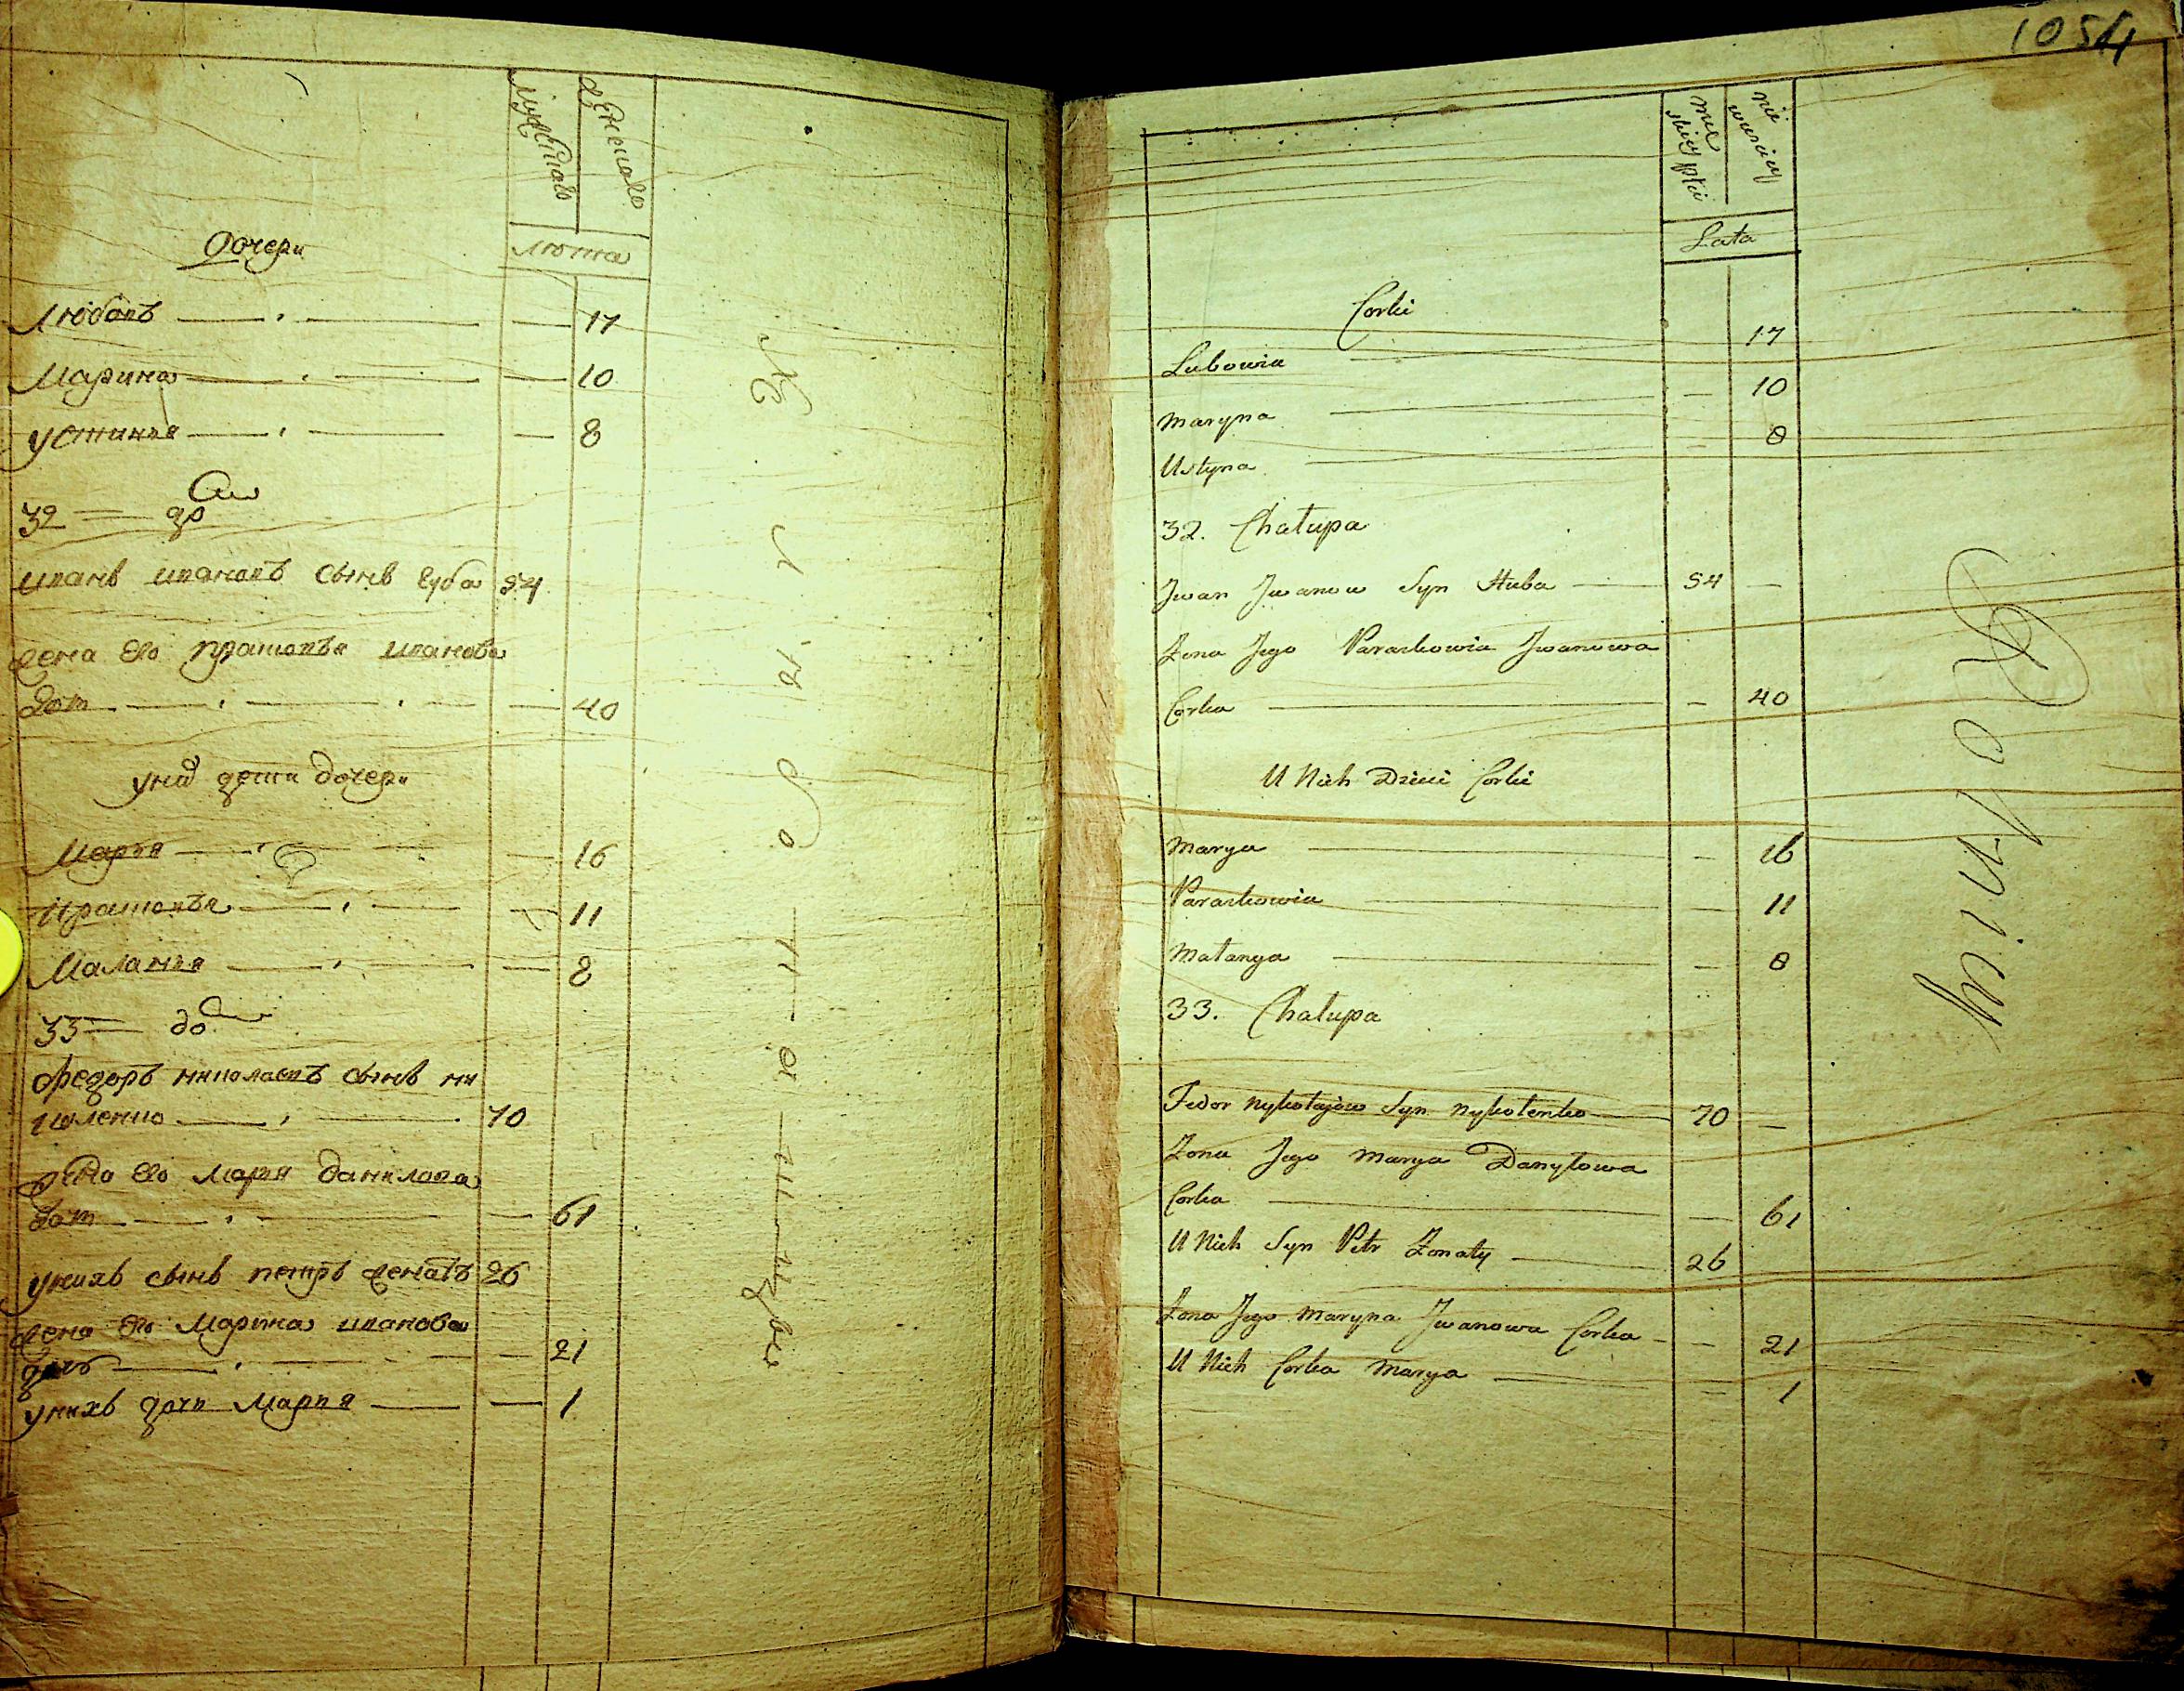 лѣта
Дочери
Любовъ 17
Марина 10
Устинья 8
32
Иванъ Ивановъ сынъ Губа 54
жена его Прасковья Иванова
доч 40
у них дети дочери
Марья 16
Прасковья 11
Маланья 8
33
Федоръ Николаевъ сынъ Ни
коленко 70
жена его Марья Данилова
доч 61
у нихъ сынъ Петръ женатъ 26
жена его Марина Иванова
дочь 21
у нихъ дочь Марья 1
1054
Lata
Corki
Lubowia 17
Maryna 10
Ustyna 8
32. Chałupa
Jwan Jwanow Syn Huba 54
Zona Jego Paraskowia Jwanowa
Corka 40
U Nich Dzieci Corki
Marya 16
Paraskowia 11
Małanya 8
33. Chałupa
Fedor Nykołajow Syn Nykołenko 70
Zona Jego Marya Danyłowa
Corka 61
U Nich Syn Petr Zonaty 26
Zona Jego Maryna Jwanowa Corka 21
U Nich Corka Marya 1